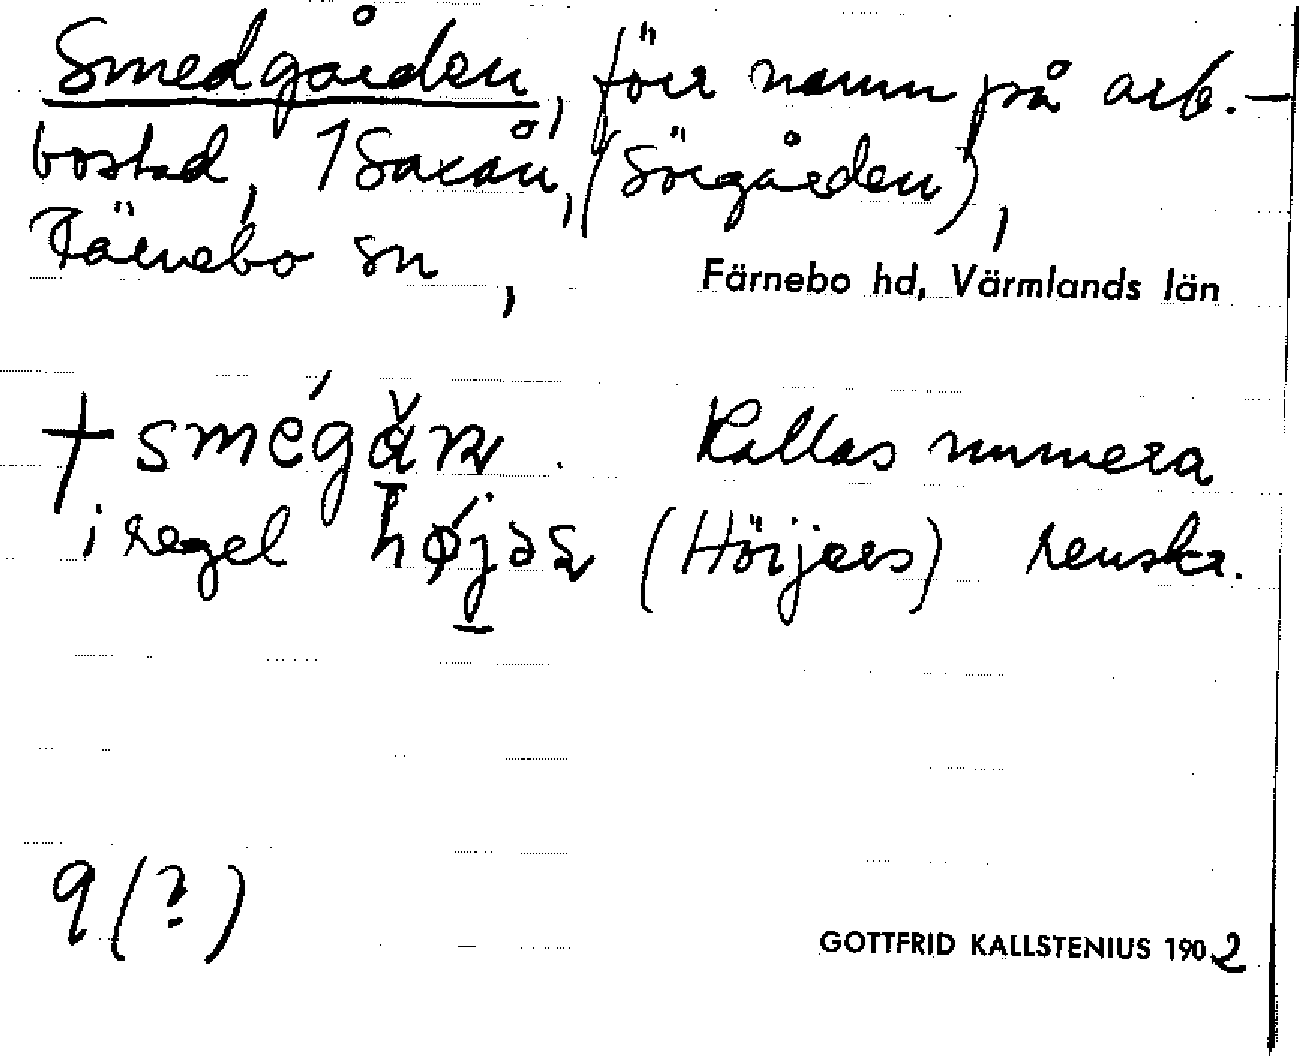 Smedgården, förr namn på arb.-
bostad, 1 Saxån, (Sörgården),
Färnebo sn, Färnebo hd, Värmlands län
† smégån. Kallas numera
i regel højəs (Höijers) renskr.
9 (?)
GOTTFRID KALLSTENIUS 1902